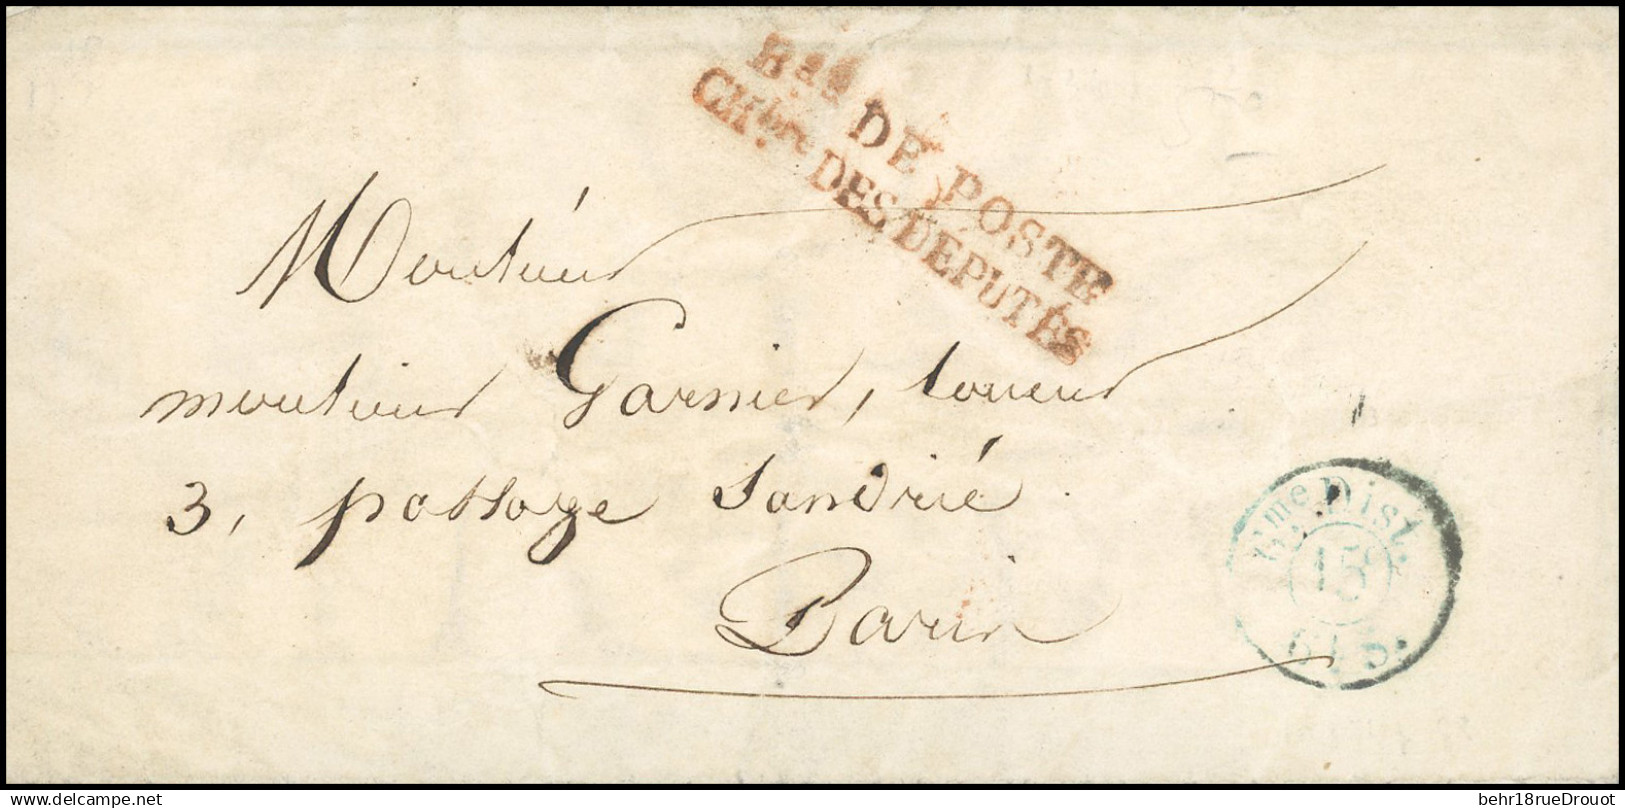 Bau DE POSTE
CHbre DES DÉPUTÉS
Monsieur
monsieur Garnier,
3, passage Sandrié
Paris
Eme Dist.
15
www.delcampe.net
behr18rueDrouot